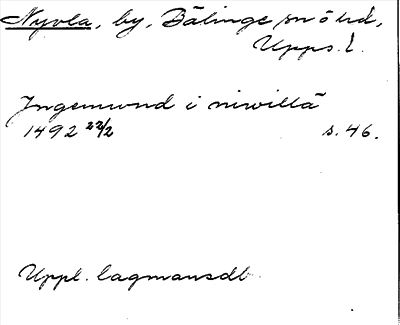 Nyvla, by, Bälinge sn o hd,
Upps. l.
Ingemund i niwillä
1492 22/2 s. 46.
Uppl. lagmansdb